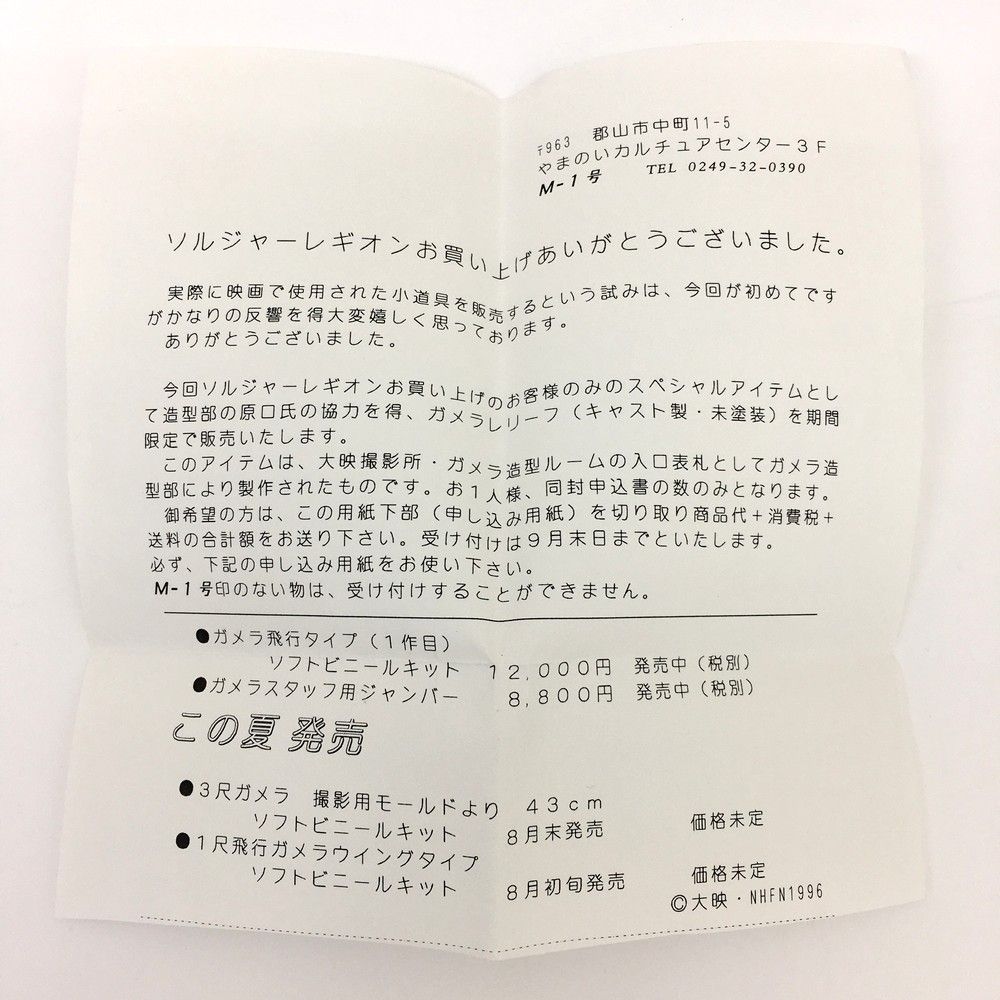 〒963 郡山市中町11-5
やまのいカルチュアセンター3F
M-1号 TEL 0249-32-0390
ソルジャーレギオンお買い上げあいがとうございました。
実際に映画で使用された小道具を販売するという試みは、今回が初めてです
がかなりの反響を得大変嬉しく思っております。
ありがとうございました。
今回ソルジャーレギオンお買い上げのお客様のみのスペシャルアイテムとし
て造型部の原口氏の協力を得、ガメラレリーフ(キャスト製・未塗装)を期間
限定で販売いたします。
このアイテムは、大映撮影所・ガメラ造型ルームの入口表札としてガメラ造
型部により製作されたものです。お1人様、同封申込書の数のみとなります。
御希望の方は、この用紙下部(申し込み用紙)を切り取り商品代+消費税+
送料の合計額をお送り下さい。受け付けは9月末日までといたします。
必ず、下記の申し込み用紙をお使い下さい。
M-1号印のない物は、受け付けすることができません。
●ガメラ飛行タイプ(1作目)
ソフトビニールキット 12,000円 発売中(税別)
●ガメラスタッフ用ジャンバー 8,800円 発売中(税別)
この夏 発売
●3尺ガメラ 撮影用モールドより 43cm
ソフトビニールキット 8月末発売 価格未定
●1尺飛行ガメラウイングタイプ
ソフトビニールキット 8月初旬発売 価格未定
©大映・NHFN1996